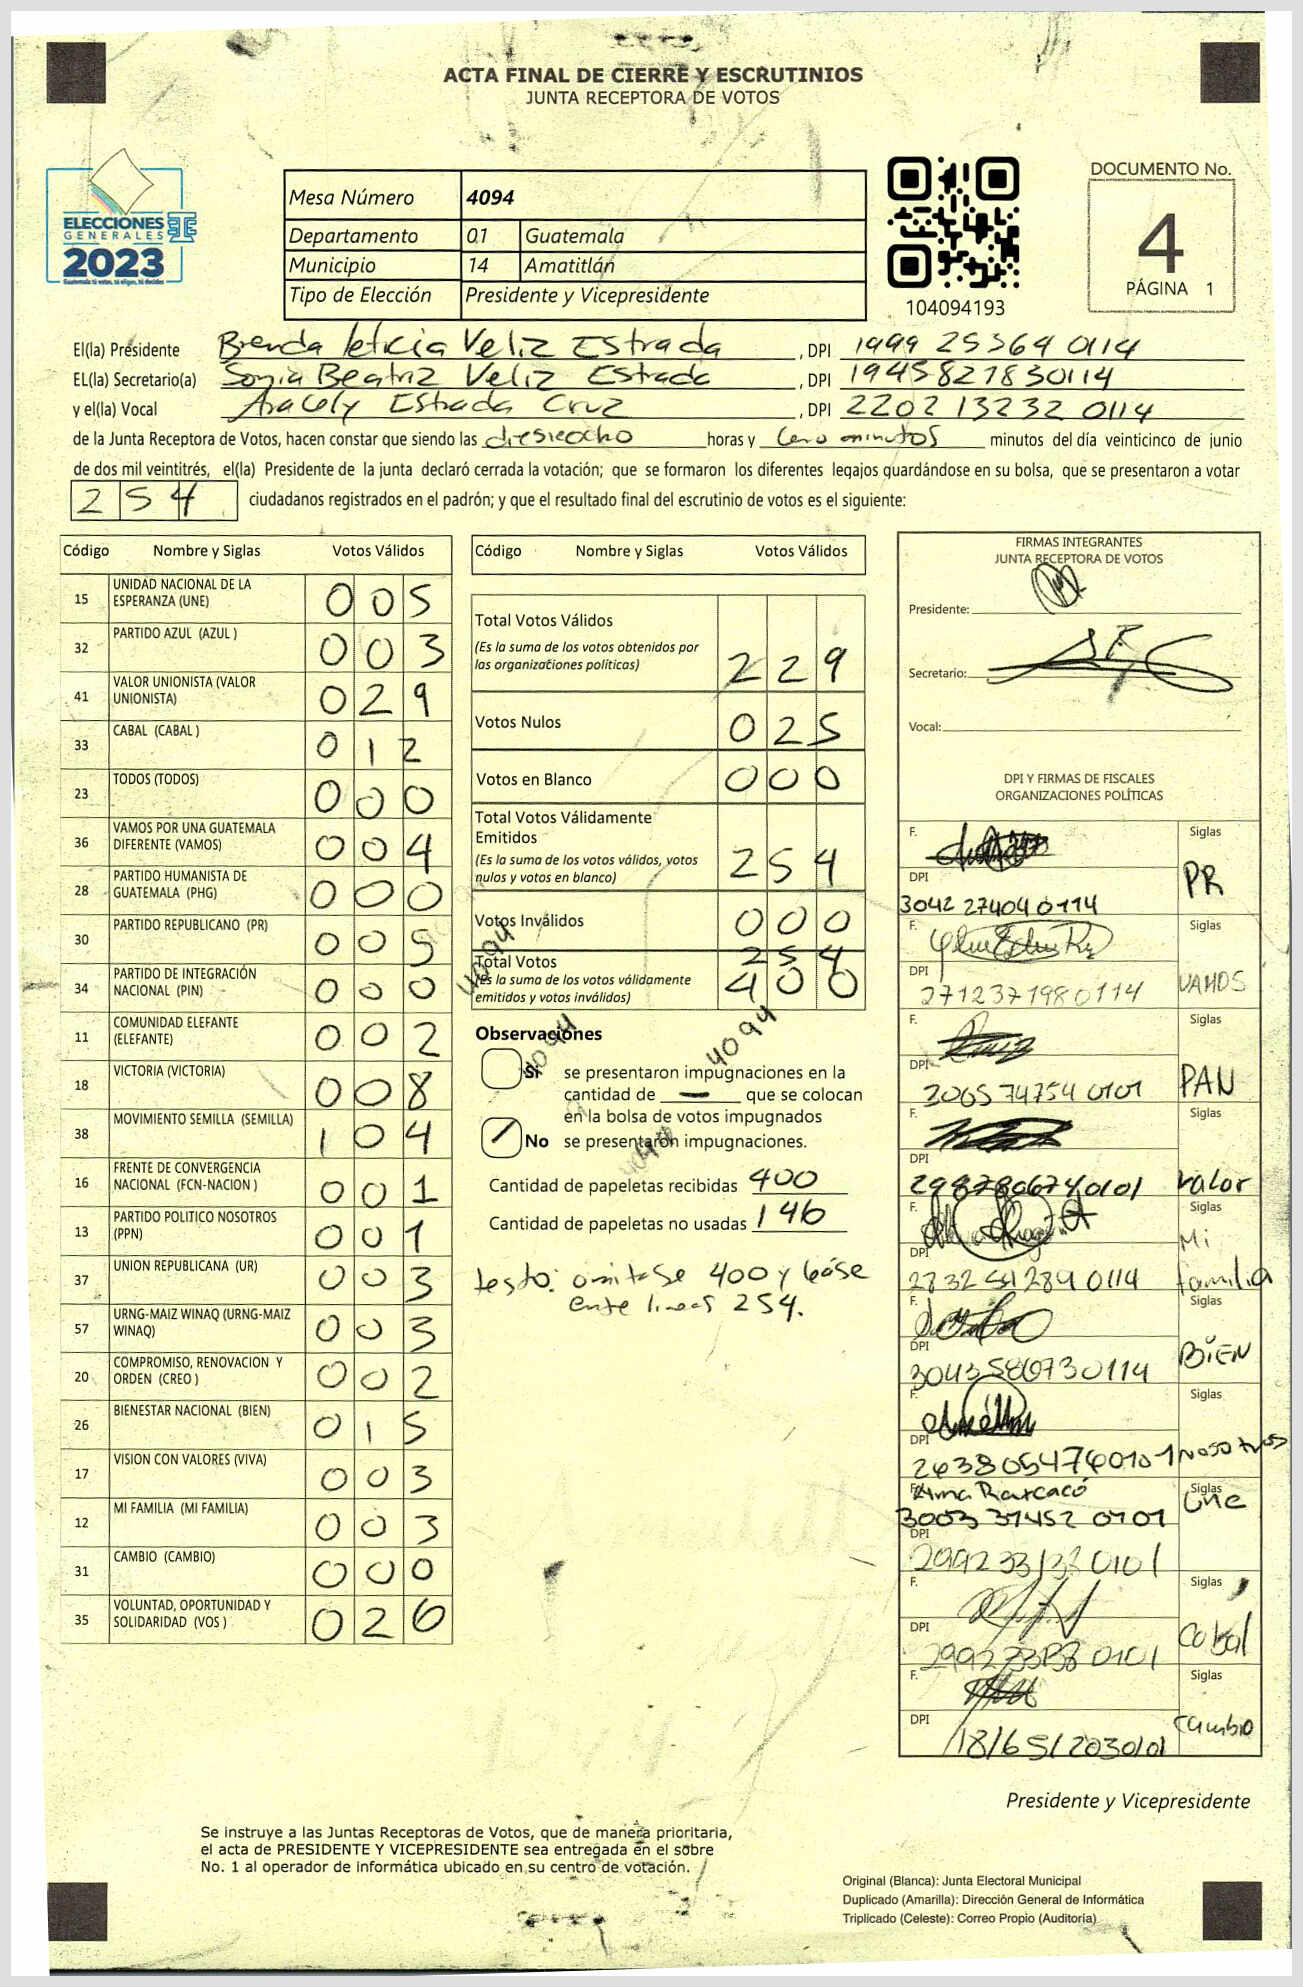 ACTA FINAL DE CIERRE Y ESCRUTINIOS
JUNTA RECEPTORA DE VOTOS
ELECCIONES
GENERALES
2023
Guatemala tú votas, tú eliges, tú decides
Mesa Número 4094
Departamento 01 Guatemala
Municipio 14 Amatitlán
Tipo de Elección Presidente y Vicepresidente
104094193
DOCUMENTO No.
4
PÁGINA 1
El(la) Présidente Brenda leticia Veliz Estrada , DPI 1999 25369 0114
EL(la) Secretario(a) Sonia Beatriz Veliz Estrada , DPI 1945827830114
y el(la) Vocal Aracely Estrada Cruz , DPI 2202 13232 0114
de la Junta Receptora de Votos, hacen constar que siendo las diesieocho horas y Cero minutos minutos del día veinticinco de junio
de dos mil veintitrés, el(la) Presidente de la junta declaró cerrada la votación; que se formaron los diferentes legajos guardándose en su bolsa, que se presentaron a votar
254 ciudadanos registrados en el padrón; y que el resultado final del escrutinio de votos es el siguiente:
Código Nombre y Siglas Votos Válidos
15 UNIDAD NACIONAL DE LA ESPERANZA (UNE) 005
32 PARTIDO AZUL (AZUL ) 003
41 VALOR UNIONISTA (VALOR UNIONISTA) 029
33 CABAL (CABAL ) 012
23 TODOS (TODOS) 000
36 VAMOS POR UNA GUATEMALA DIFERENTE (VAMOS) 004
28 PARTIDO HUMANISTA DE GUATEMALA (PHG) 000
30 PARTIDO REPUBLICANO (PR) 005
34 PARTIDO DE INTEGRACIÓN NACIONAL (PIN) 000
11 COMUNIDAD ELEFANTE (ELEFANTE) 002
18 VICTORIA (VICTORIA) 008
38 MOVIMIENTO SEMILLA (SEMILLA) 104
16 FRENTE DE CONVERGENCIA NACIONAL (FCN-NACION ) 001
13 PARTIDO POLITICO NOSOTROS (PPN) 001
37 UNION REPUBLICANA (UR) 003
57 URNG-MAIZ WINAQ (URNG-MAIZ WINAQ) 003
20 COMPROMISO, RENOVACION Y ORDEN (CREO ) 002
26 BIENESTAR NACIONAL (BIEN) 015
17 VISION CON VALORES (VIVA) 003
12 MI FAMILIA (MI FAMILIA) 003
31 CAMBIO (CAMBIO) 000
35 VOLUNTAD, OPORTUNIDAD Y SOLIDARIDAD (VOS ) 026
Código Nombre y Siglas Votos Válidos
Total Votos Válidos 229
(Es la suma de los votos obtenidos por
las organizaciones políticas)
Votos Nulos 025
Votos en Blanco 000
Total Votos Válidamente
Emitidos 254
(Es la suma de los votos válidos, votos
nulos y votos en blanco)
Votos Inválidos 000
Total Votos 254
400
(Es la suma de los votos válidamente
emitidos y votos inválidos)
4094
4094
4094
4094
Observaciones
Si se presentaron impugnaciones en la
cantidad de — que se colocan
en la bolsa de votos impugnados
No se presentaron impugnaciones.
Cantidad de papeletas recibidas 400
Cantidad de papeletas no usadas 146
testo: omitase 400 y lease
entre lineas 254.
FIRMAS INTEGRANTES
JUNTA RECEPTORA DE VOTOS
Presidente:
Secretario:
Vocal:
DPI Y FIRMAS DE FISCALES
ORGANIZACIONES POLÍTICAS
F. Siglas PR
DPI 3042 27404 0114
F. Siglas VAMOS
DPI 2712371980114
F. Siglas PAN
DPI 3065 74754 0101
F. Siglas Valor
DPI 2987806740101
F. Siglas Mi familia
DPI 2832 512890114
F. Siglas BiEN
DPI 3043586730114
F. Siglas Nosotros
DPI 2638054760101
F. Alma Raxcacó Siglas Une
3003 37452 0101
DPI 299233138 0101
F. Siglas Cabal
DPI 299233138 0101
F. Siglas Cambio
DPI 1816512030101
Presidente y Vicepresidente
Se instruye a las Juntas Receptoras de Votos, que de manera prioritaria,
el acta de PRESIDENTE Y VICEPRESIDENTE sea entregada en el sobre
No. 1 al operador de informática ubicado en su centro de votación.
Original (Blanca): Junta Electoral Municipal
Duplicado (Amarilla): Dirección General de Informática
Triplicado (Celeste): Correo Propio (Auditoría)